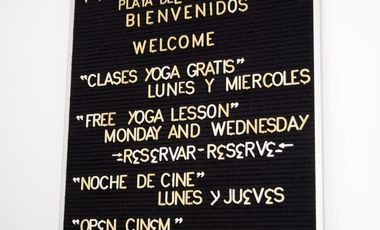 PLAYA DEL
BIENVENIDOS
WELCOME
"CLASES YOGA GRATIS"
LUNES Y MIERCOLES
"FREE YOGA LESSON"
MONDAY AND WEDNESDAY
RESERVAR-RESERVE
"NOCHE DE CINE"
LUNES Y JUEVES
"OPEN CINEM"